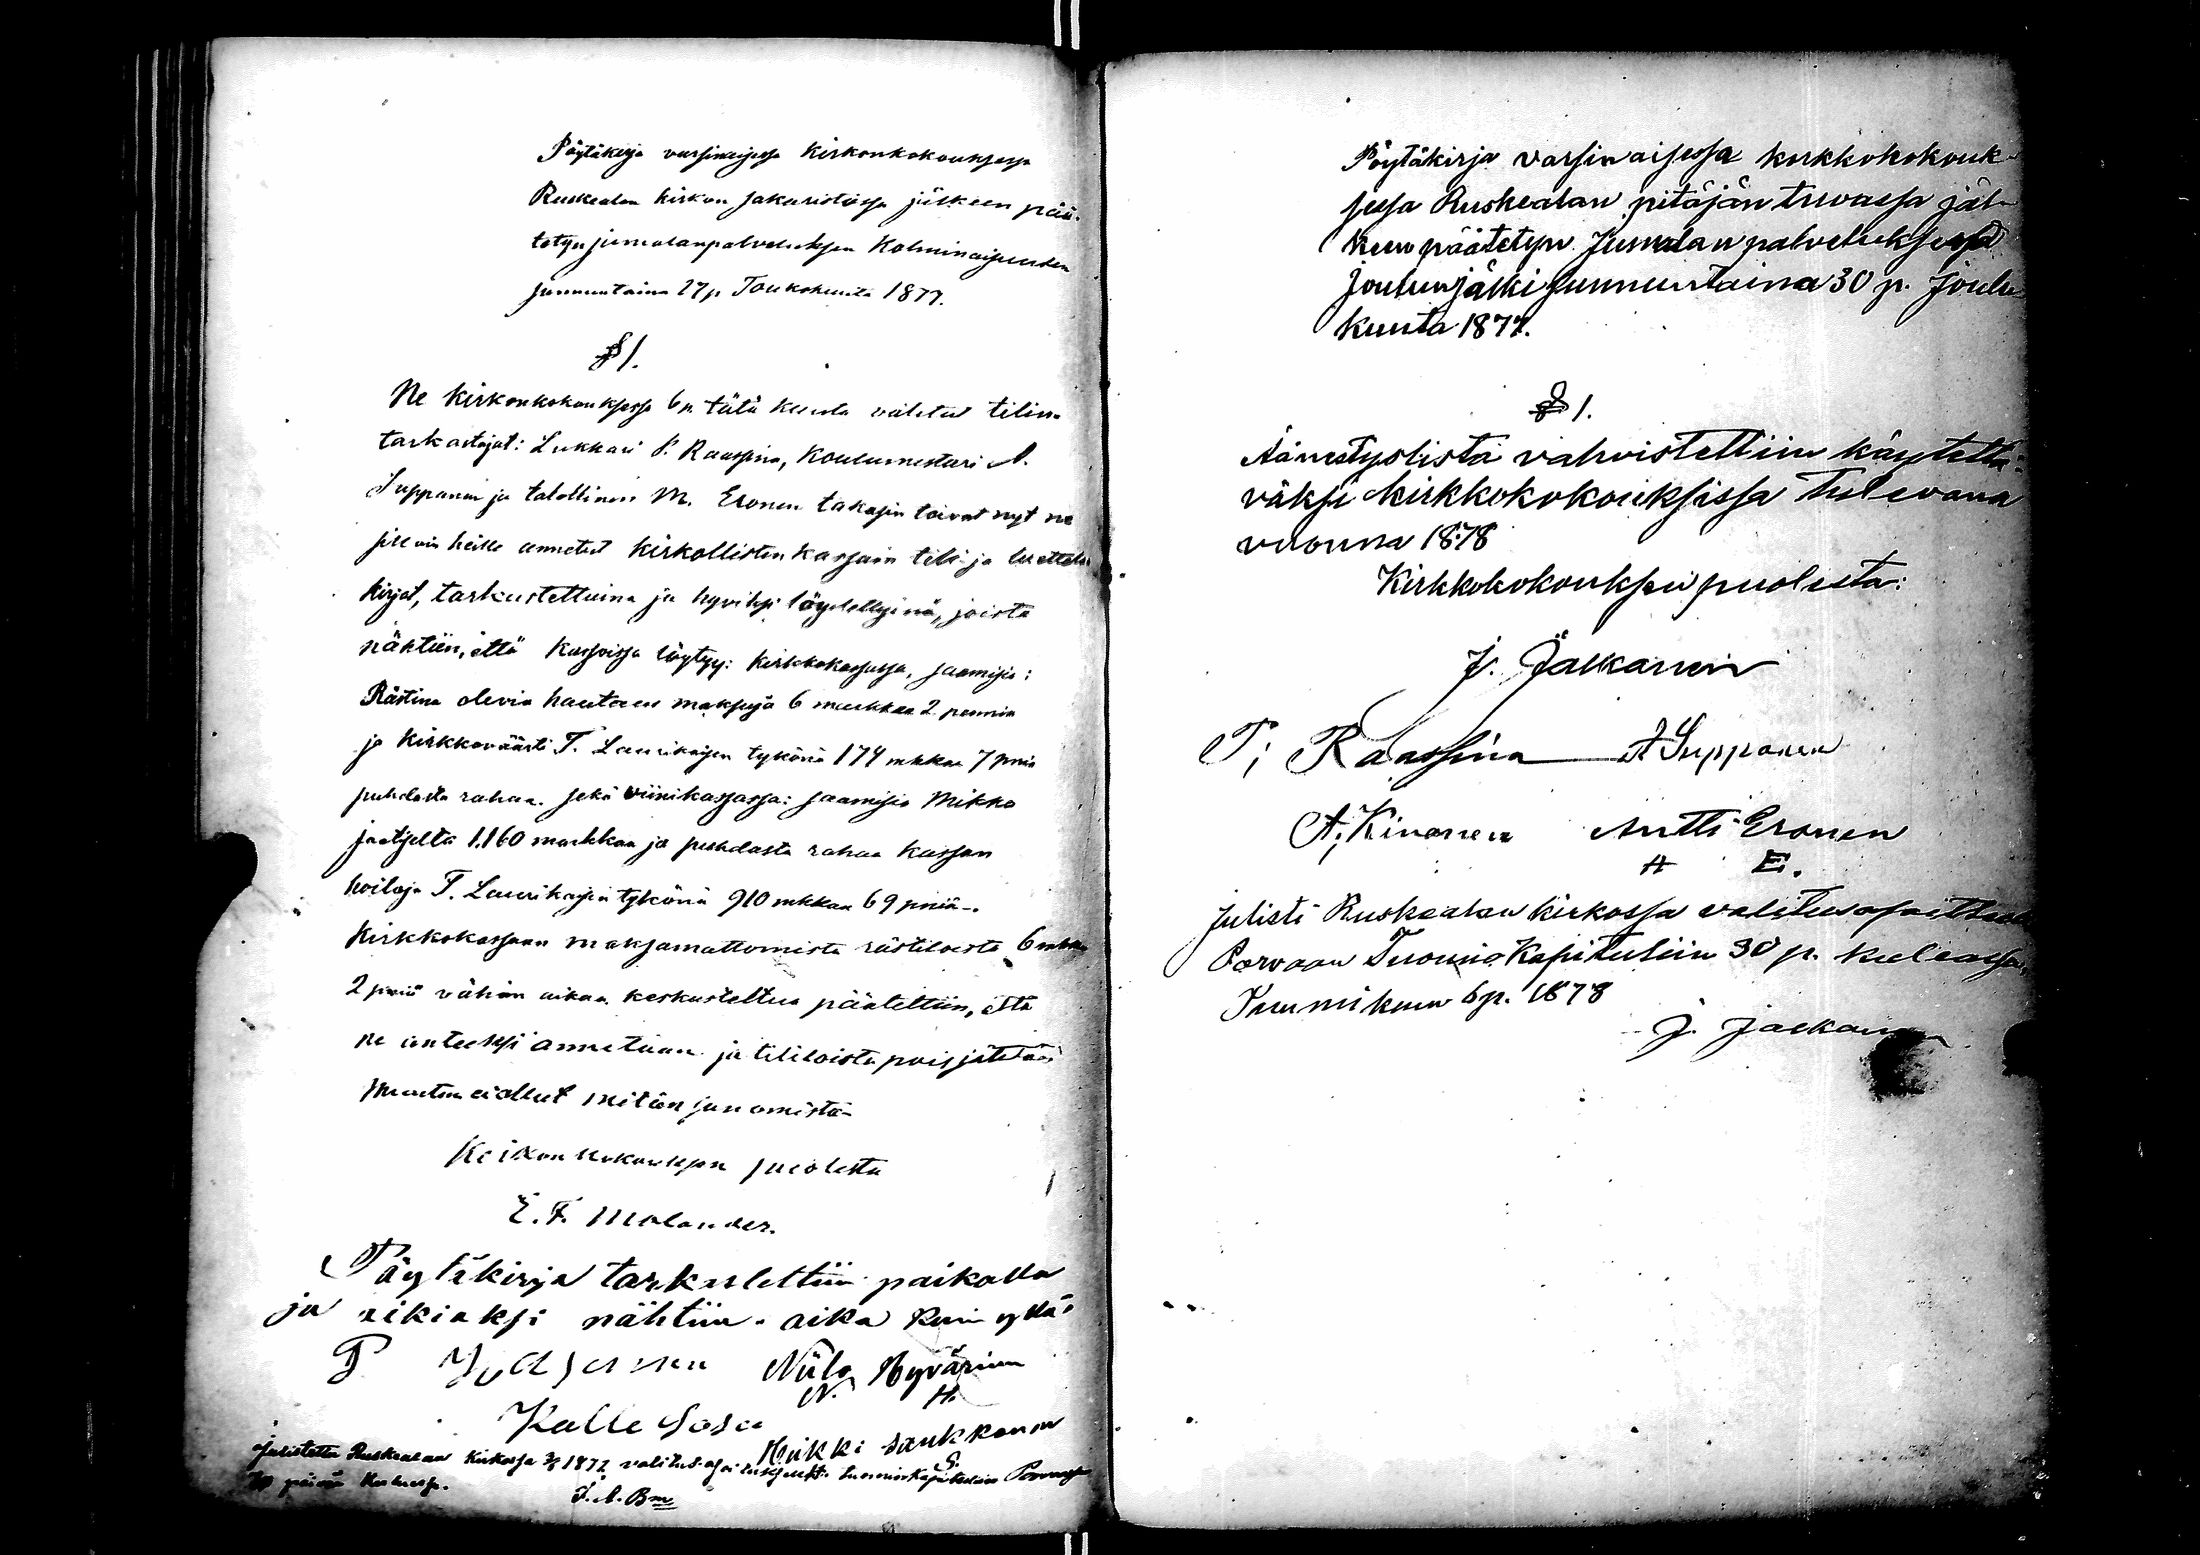 Pöytäkirja varsinaisessa Kirkonkokouksessa
Ruskealan kirkon sakaristossa jälkeen pää-
tetyn jumalanpalveluksen Kolminaisuuden
sunnuntaina 27 p Toukokuuta 1877.
§ 1.
Ne Kirkonkokouksessa 6 p. tätä kuuta valitut tilin-
tarkastajat: Lukkari P. Raassina, Koulumestari A.
Supponen ja talollinen M. Eronen takasin toivat nyt ne
silloin heille annetut Kirkollisten Kassain tili- ja luettelo
kirjat, tarkastettuina ja hyviksi löydettyinä, joista
nähtiin, että Kassoissa löytyy: Kirkkokassassa, saamisia:
Rästinä olevia hautaus maksuja 6 markkaa 2 penniä
ja Kirkkoväärti T. Laurikaisen tykönä 174 mkkaa 7 pniä
puhdasta rahaa. sekä viinikassassa: saamisia Mikko
1,160 markkaa ja puhdasta rahaa Kassan
hoitaja T. Laurikaisen tykönä 910 mkkaa 69 pniä.
Kirkkokassaan maksamattomista rästilöistä 6 mkkaa
2 pniä vähän aikaa keskusteltua päätettiin, että
ne anteeksi annetaan ja tililöistä pois jätetään
Muuta ei ollut mitään sanomista
Kirkon kokouksen puolesta
E. F. Molander.
Pöytäkirja tarkastettiin paikalla
ja oikiaksi nähtiin. aika kuin yllä:
P Niilo Hyvärinen
N. H.
Kalle Sosa
Heikki Saukkonen
S.
Julistettu Ruskealan Kirkossa 1877 valitus-osoituksella Tuomiokapituliin Porvoossa
päivän kuluessa.
Pöytäkirja varsinaisessa kirkkokokouk-
sessa Ruskealan pitäjän tuvassa jäl-
keen päätetyn Jumalan palveluksessa
joulun jälki sunnuntaina 30 p. Joulu
kuuta 1877.
§ 1.
Äänestyslista vahvistettiin käytettä-
väksi kirkkokokouksissa tulevana
vuonna 1878
Kirkkokokouksen puolesta:
J. Jalkanen
P; Raassina A Supponen
A; Kinonen Antti Eronen
A E.
Julisti Ruskealan kirkossa valitusosoituksella
Porvoon Tuomio Kapituliin 30 p. kuluessa,
Tammikuun 6 p. 1878
J. Jalkanen